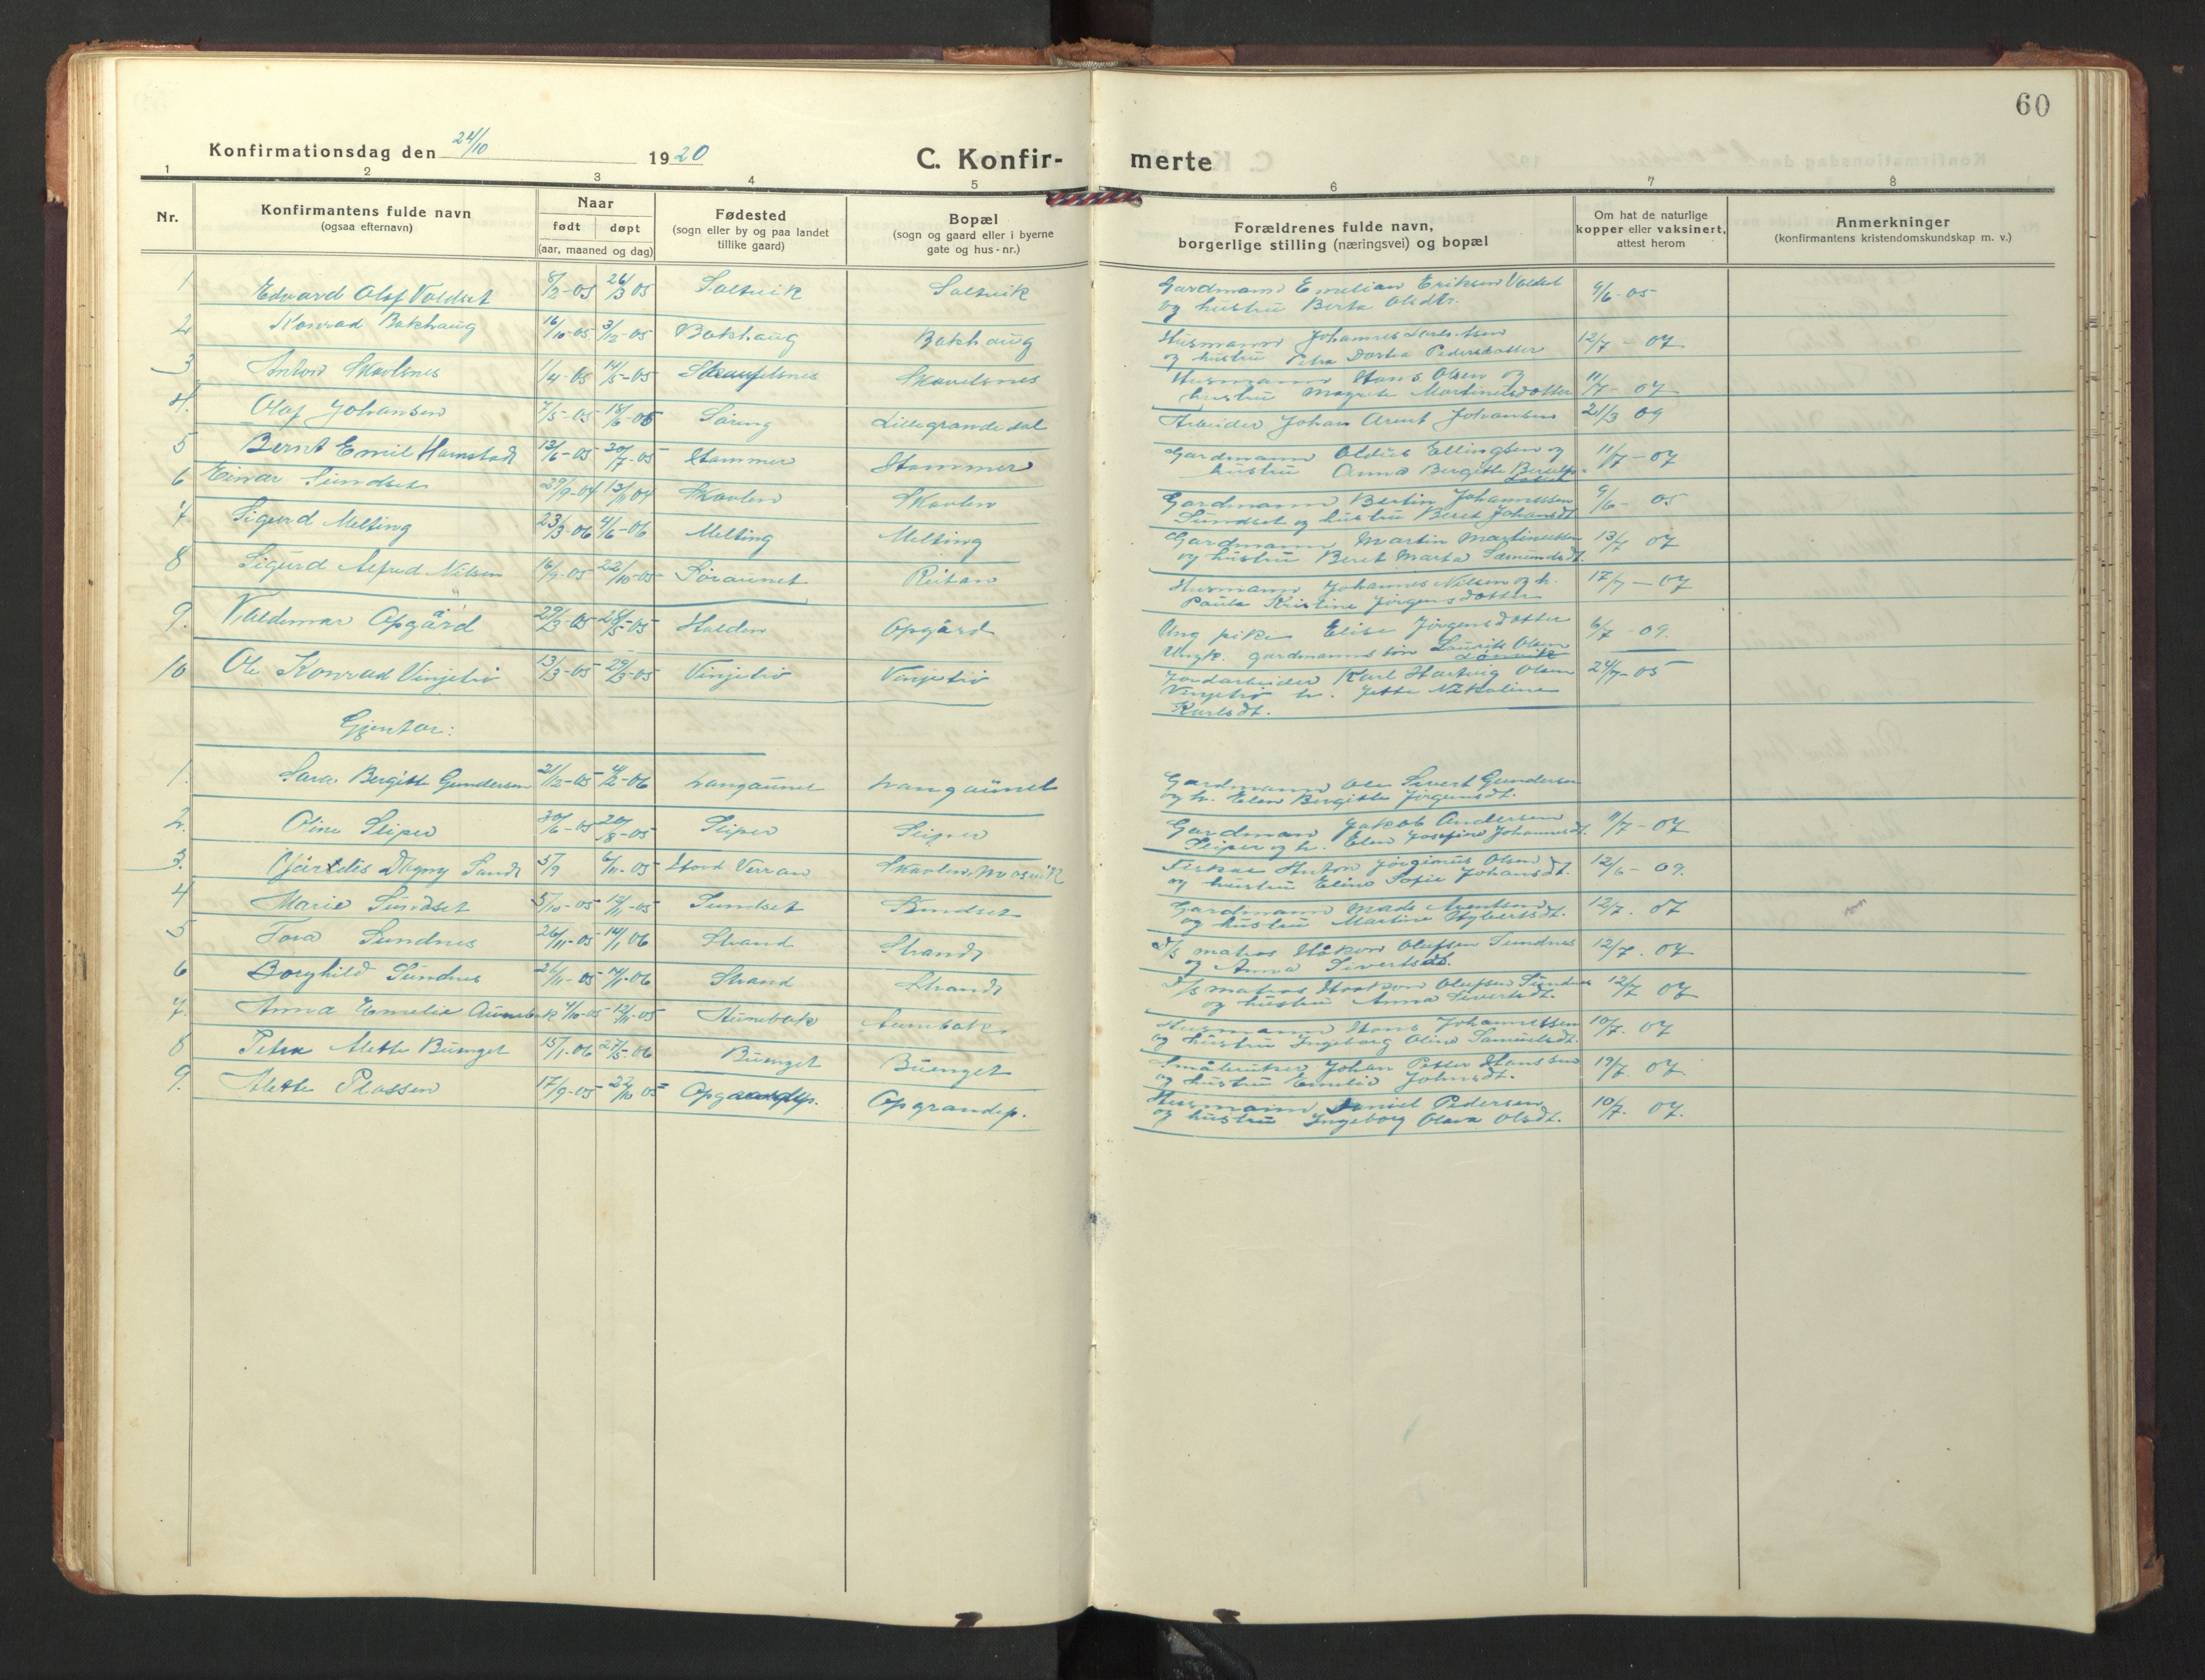 60
Konfirmationsdag den 24/10 1920
C. Konfir- merte
1 2 3 4 5 6 7 8
Nr.
Konfirmantens fulde navn
(ogsaa efternavn)
Naar
født døpt
(aar, maaned og dag)
Fødested
(sogn eller by og paa landet
tillike gaard)
Bopæl
(sogn og gaard eller i byerne
gate og hus-nr.)
Forældrenes fulde navn,
borgerlige stilling (næringsvei) og bopæl
Om hat de naturlige
kopper eller vaksinert,
attest herom
Anmerkninger
(konfirmantens kristendomskundskap m. v.)
1 Edvard Olaf Valdset 8/2-05 26/3 05 Saltvik Saltvik Gardmann Emelian Eriksen Valdset 9/6-05
og hustru Berta Olsdtr.
2 Konrad Bakhaug 16/10-05 3/12-05 Bakhaug Bakhaug Husmann Johannes Lorentsen 12/7-07
og hustru Petra Dortea Pedersdotter
3 Anton Skavlsnes 1/4-05 14/5-05 Skavlsnes Husmann Hans Olsen og 11/7-07
hustru Magrete Martinusdotter
4. Olaf Johansen 7/5-05 18/6-05 Søring Lillegrandedal Arbeider Johan Arent Johansen 21/3 09
5 Bernt Emil Hamstad 13/6-05 30/7-05 Hammer Hammer Gardmann Oldus Ellingsen og 11/7-07
hustru Anna Bergitte
6 Einar Sundset 29/9-04 13/11 04 Skavlen Skavlen Gardmann Bertin Johannessen 9/6-05
Sundset og hustru Beret Johansdt.
7. Sigurd Melting 23/3-06 4/6-06 Melting Melting Gardmann Martin Martinussen 13/7 07
og hustru Beret Marta Samundsdt.
8 Sigurd Alfred Nilsen 16/9-05 22/10-05 Søraunet Reitan Husmann Johannes Nilsen og h. 17/7-07
Paula Kristine Jørgensdotter
9. Valdemar Opgård 29/3-05 28/5-05 Halden Opgård Ung pike Elise Jørgensdotter 6/7-09.
Ungk. gardmannssøn Laurits Olsen
10 Ole Konrad Vinjeliø 13/3-05 29/3-05 Vinjeliø Vinjeliø Jordarbeider Karl Hartvig Olsen 24/7-05
Vinjeliø h. Jette Nikoline
Karlsdt.
Gjentor:
1. Sara Bergitte Gundersen 21/12-05 4/2-06 Langaunet Langaunet Gardmann Ole Sivert Gundersen
og h. Elen Bergitte Jørgensdt.
2. Oline Sliper 30/6-05 20/8-05 Sliper Sliper Gardmann Jakob Andersen 11/7-07
Sliper og h. Elen Josefine Johannesdt.
3. Dagny Sand 5/9 6/11-05 Stord Verran Skavlen, Mosvik Fisker Anton Jørginus Olsen 12/6-09.
og hustru Eline Sofie Johansdt.
4 Marie Sundset 5/10-05 12/11-05 Sundset Sundset Gardmann Mads Arentsen 12/7. 07
og hustru Martine
5 Tora Sundnes 26/11-05 14/1 06 Strand Strand D/S matros Håkon Olufsen Sundnes 12/7. 07
og Anna Sivertsdt.
6 Borghild Sundnes 26/11-05 14/1-06 Strand Strand D/S matros Haakon Olufsen Sundnes 12/7 07
og hustru Anna Sivertsdt.
7. Anna Emelie Aunebak 4/10-05 12/11-05 Aunebak Aunebak Husmann Hans Johannessen 10/7. 07
og hustru Ingeborg Oline Samuelsdt.
8 Petra Alette Buenget 15/1-06 27/5-06 Buenget Buenget Småbruker Johan Petter Hanssen 19/7. 07
og hustru Emelie Johnsdt.
9. Alette Plassen 17/9-05 22/10 05 Opgrandepl. Husmann Daniel Pedersen 10/7. 07.
og hustru Ingeborg Olava Olsdt.